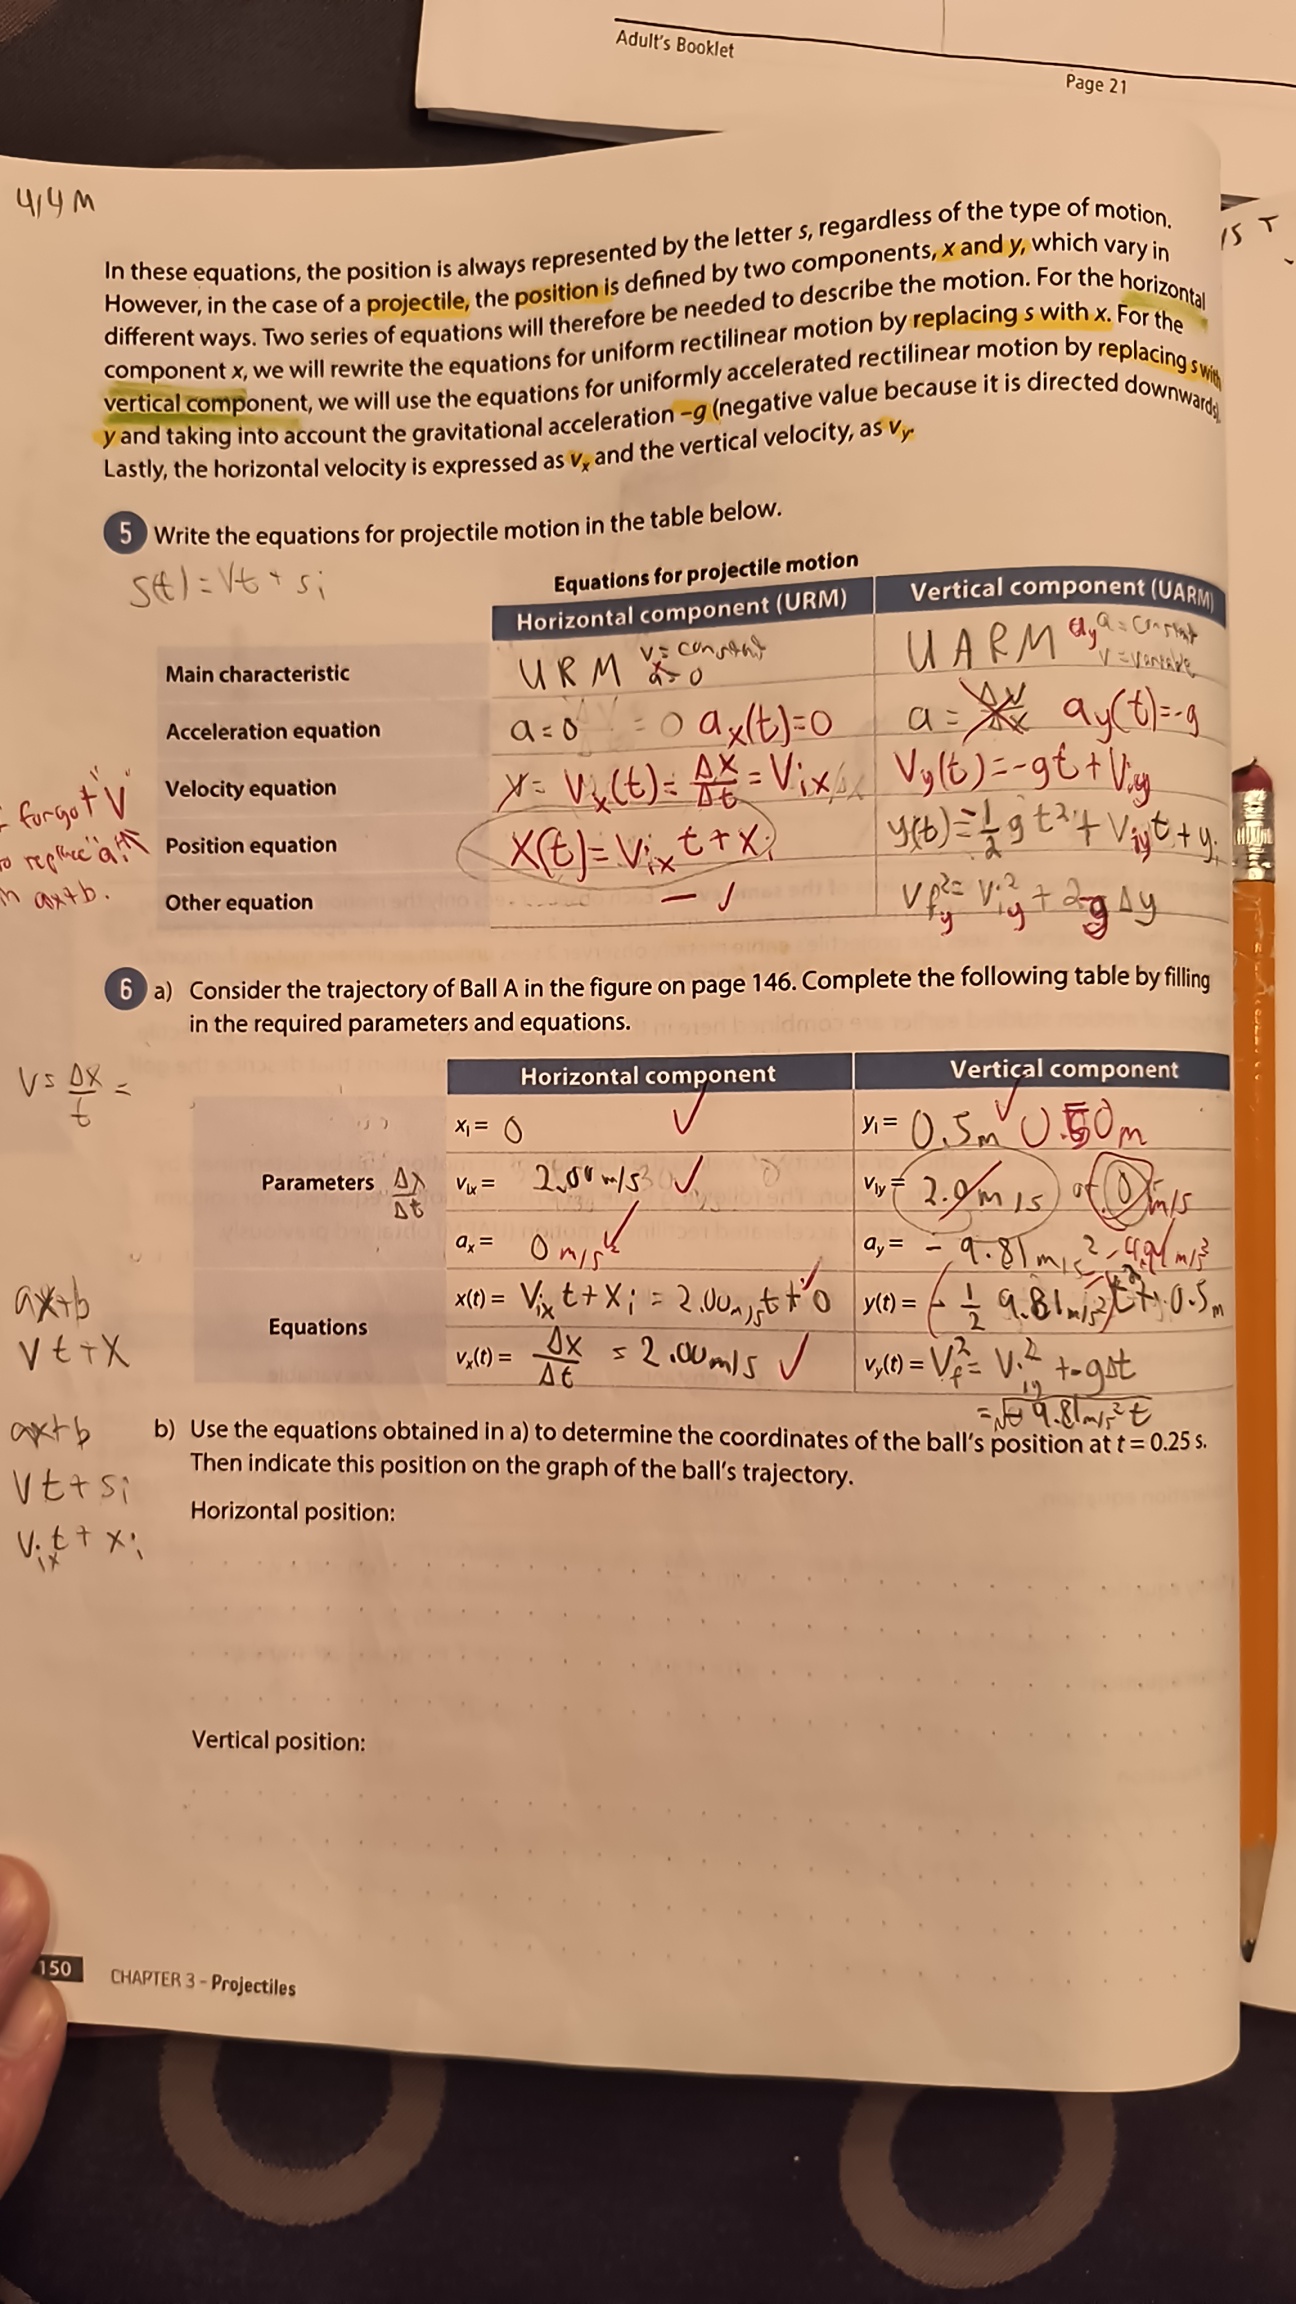 Adult's Booklet
Page 21
4,4 M
In these equations, the position is always represented by the letter s, regardless of the type of motion.
However, in the case of a projectile, the position is defined by two components, x and y, which vary in
different ways. Two series of equations will therefore be needed to describe the motion. For the horizontal
component x, we will rewrite the equations for uniform rectilinear motion by replacing s with x. For the
vertical component, we will use the equations for uniformly accelerated rectilinear motion by replacing s with
y and taking into account the gravitational acceleration –g (negative value because it is directed downwards).
Lastly, the horizontal velocity is expressed as vx and the vertical velocity, as vy.
5 Write the equations for projectile motion in the table below.
S(t) = Vt + si
Equations for projectile motion
Horizontal component (URM) Vertical component (UARM)
Main characteristic URM v = constant a = 0 UARM ay a = constant v = variable
Acceleration equation a = 0 = 0 ax(t) = 0 a = ay(t) = -g
Velocity equation Vx(t) = Δx/Δt = Vix Vy(t) = -gt + Viy
forgot "V"
Position equation X(t) = Vix t + xi y(t) = -1/2 g t² + Viy t + yi
to replace "a"
ax+b.
Other equation — ✓ Vfy² = Viy² + 2-g Δy
6 a) Consider the trajectory of Ball A in the figure on page 146. Complete the following table by filling
in the required parameters and equations.
V = Δx/t =
Horizontal component Vertical component
xi = 0 ✓ yi = 0.5m ✓ 0.50m
Parameters Δx/Δt vix = 2.00 m/s ✓ viy = 2.0 m/s 0 m/s
ax = 0 m/s² ✓ ay = - 9.81 m/s² -4.91 m/s²
ax+b
x(t) = Vix t + xi = 2.00m/s t + 0 ✓ y(t) = (-1/2 9.81m/s²)t² + 0.5m
Equations
Vt+X
vx(t) = Δx/Δt = 2.00m/s ✓ vy(t) = Vf² = Viy² + -gΔt
= √-9.81m/s² t
ax+b
b) Use the equations obtained in a) to determine the coordinates of the ball's position at t = 0.25 s.
Then indicate this position on the graph of the ball's trajectory.
Vt + si
Horizontal position:
Vix t + xi
Vertical position:
150 CHAPTER 3 – Projectiles